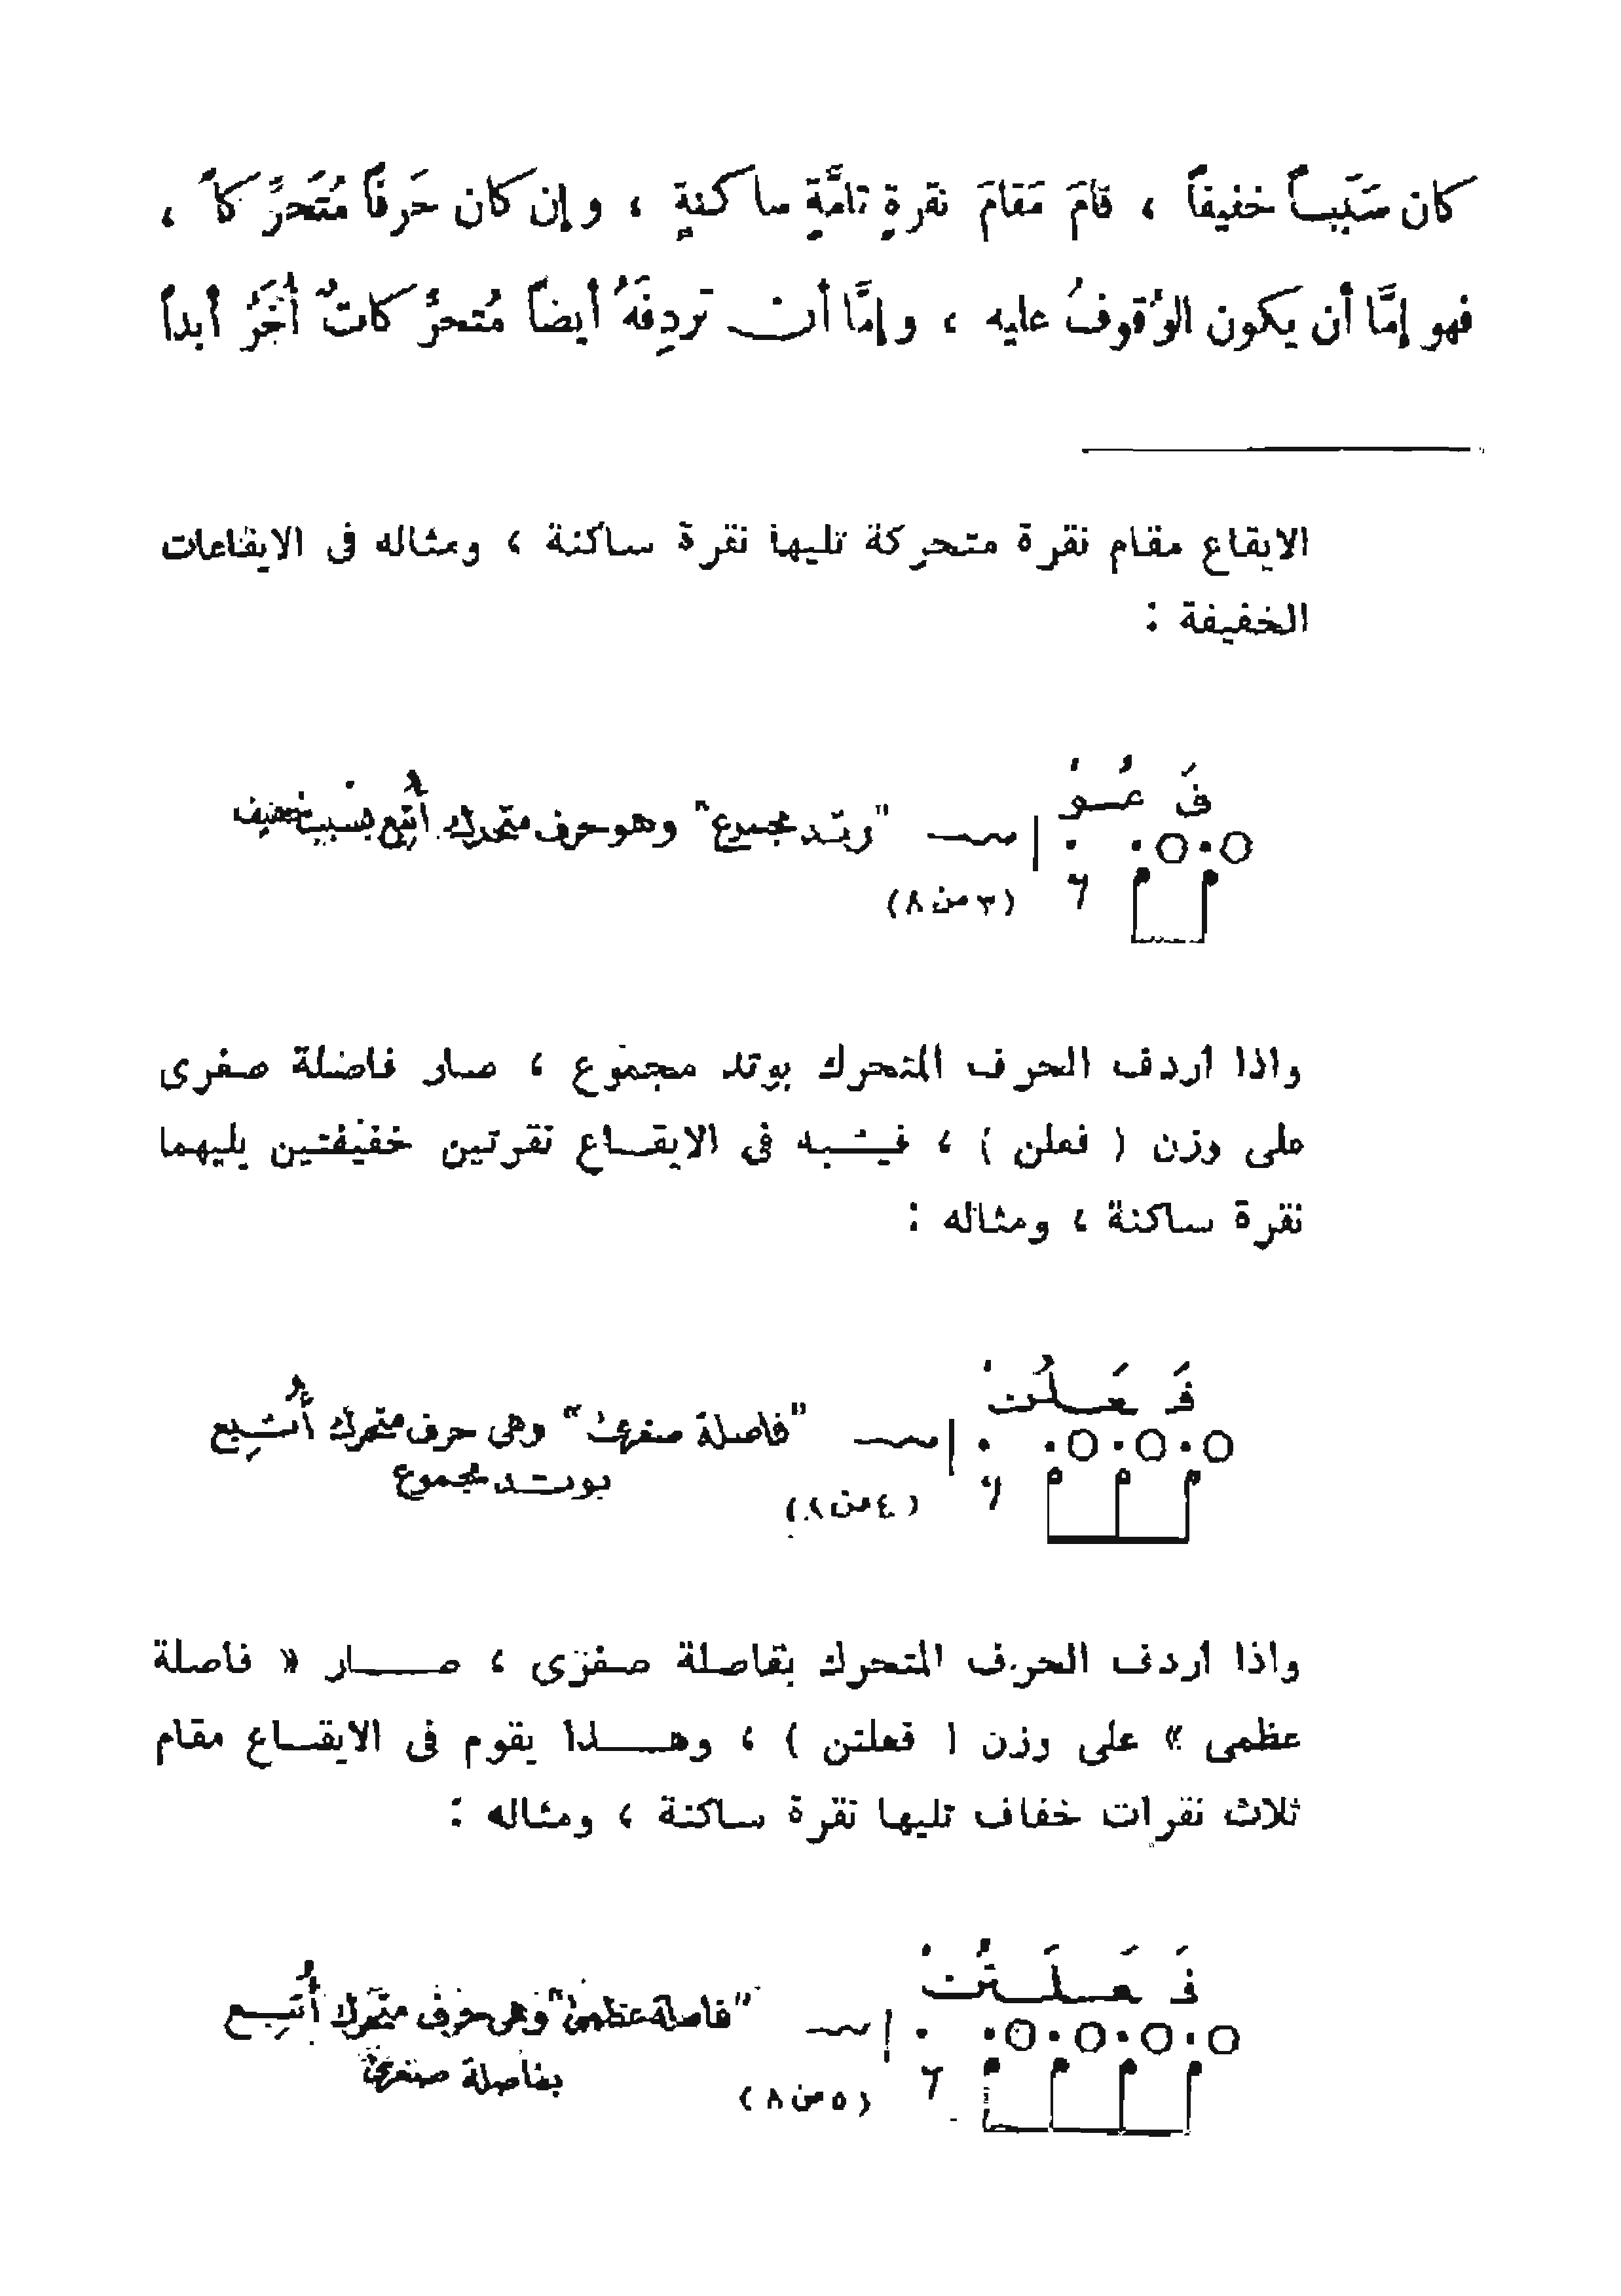 كان سَبَباً خفيفاً ، قامَ مَقامَ نقرةٍ تامَّةٍ ساكنةٍ ، وإن كان حَرفاً مُتَحرِّكاً ،
فهو إمَّا أن يكون الوُقوفُ عليه ، وإمَّا أن تَردِفَهُ أيضاً مُتحرِّكاتٌ أُخَرُ أبداً
الايقاع مقام نقرة متحركة تليها نقرة ساكنة ، ومثاله فى الايقاعات
الخفيفة :
فَ عُـوْ
"وتـد مجموع" وهو حرف متحرك أُتبِع بسبب خفيف
(٣ من ٨)
واذا أردف الحرف المتحرك بوتد مجموع ، صار فاضلة صغرى
على وزن ( فعلن ) ، فيشبه في الايقاع نقرتين خفيفتين يليهما
نقرة ساكنة ، ومثاله :
فَـ عَـلُنْ
"فاصلة صغرى" وهى حرف متحرك أُتـبِع
بوتـد مجموع
(٤ من ٨)
واذا أردف الحرف المتحرك بفاصلة صغرى ، صـار « فاصلة
عظمى » على وزن ( فعلتن ) ، وهـذا يقوم فى الايقـاع مقام
ثلاث نقرات خفاف تليها نقرة ساكنة ، ومثاله :
فَـ عَـلَـتُنْ
"فاصلة عظمى" وهى حرف متحرك أُتـبِـع
بفاصلة صغرى
(٥ من ٨)